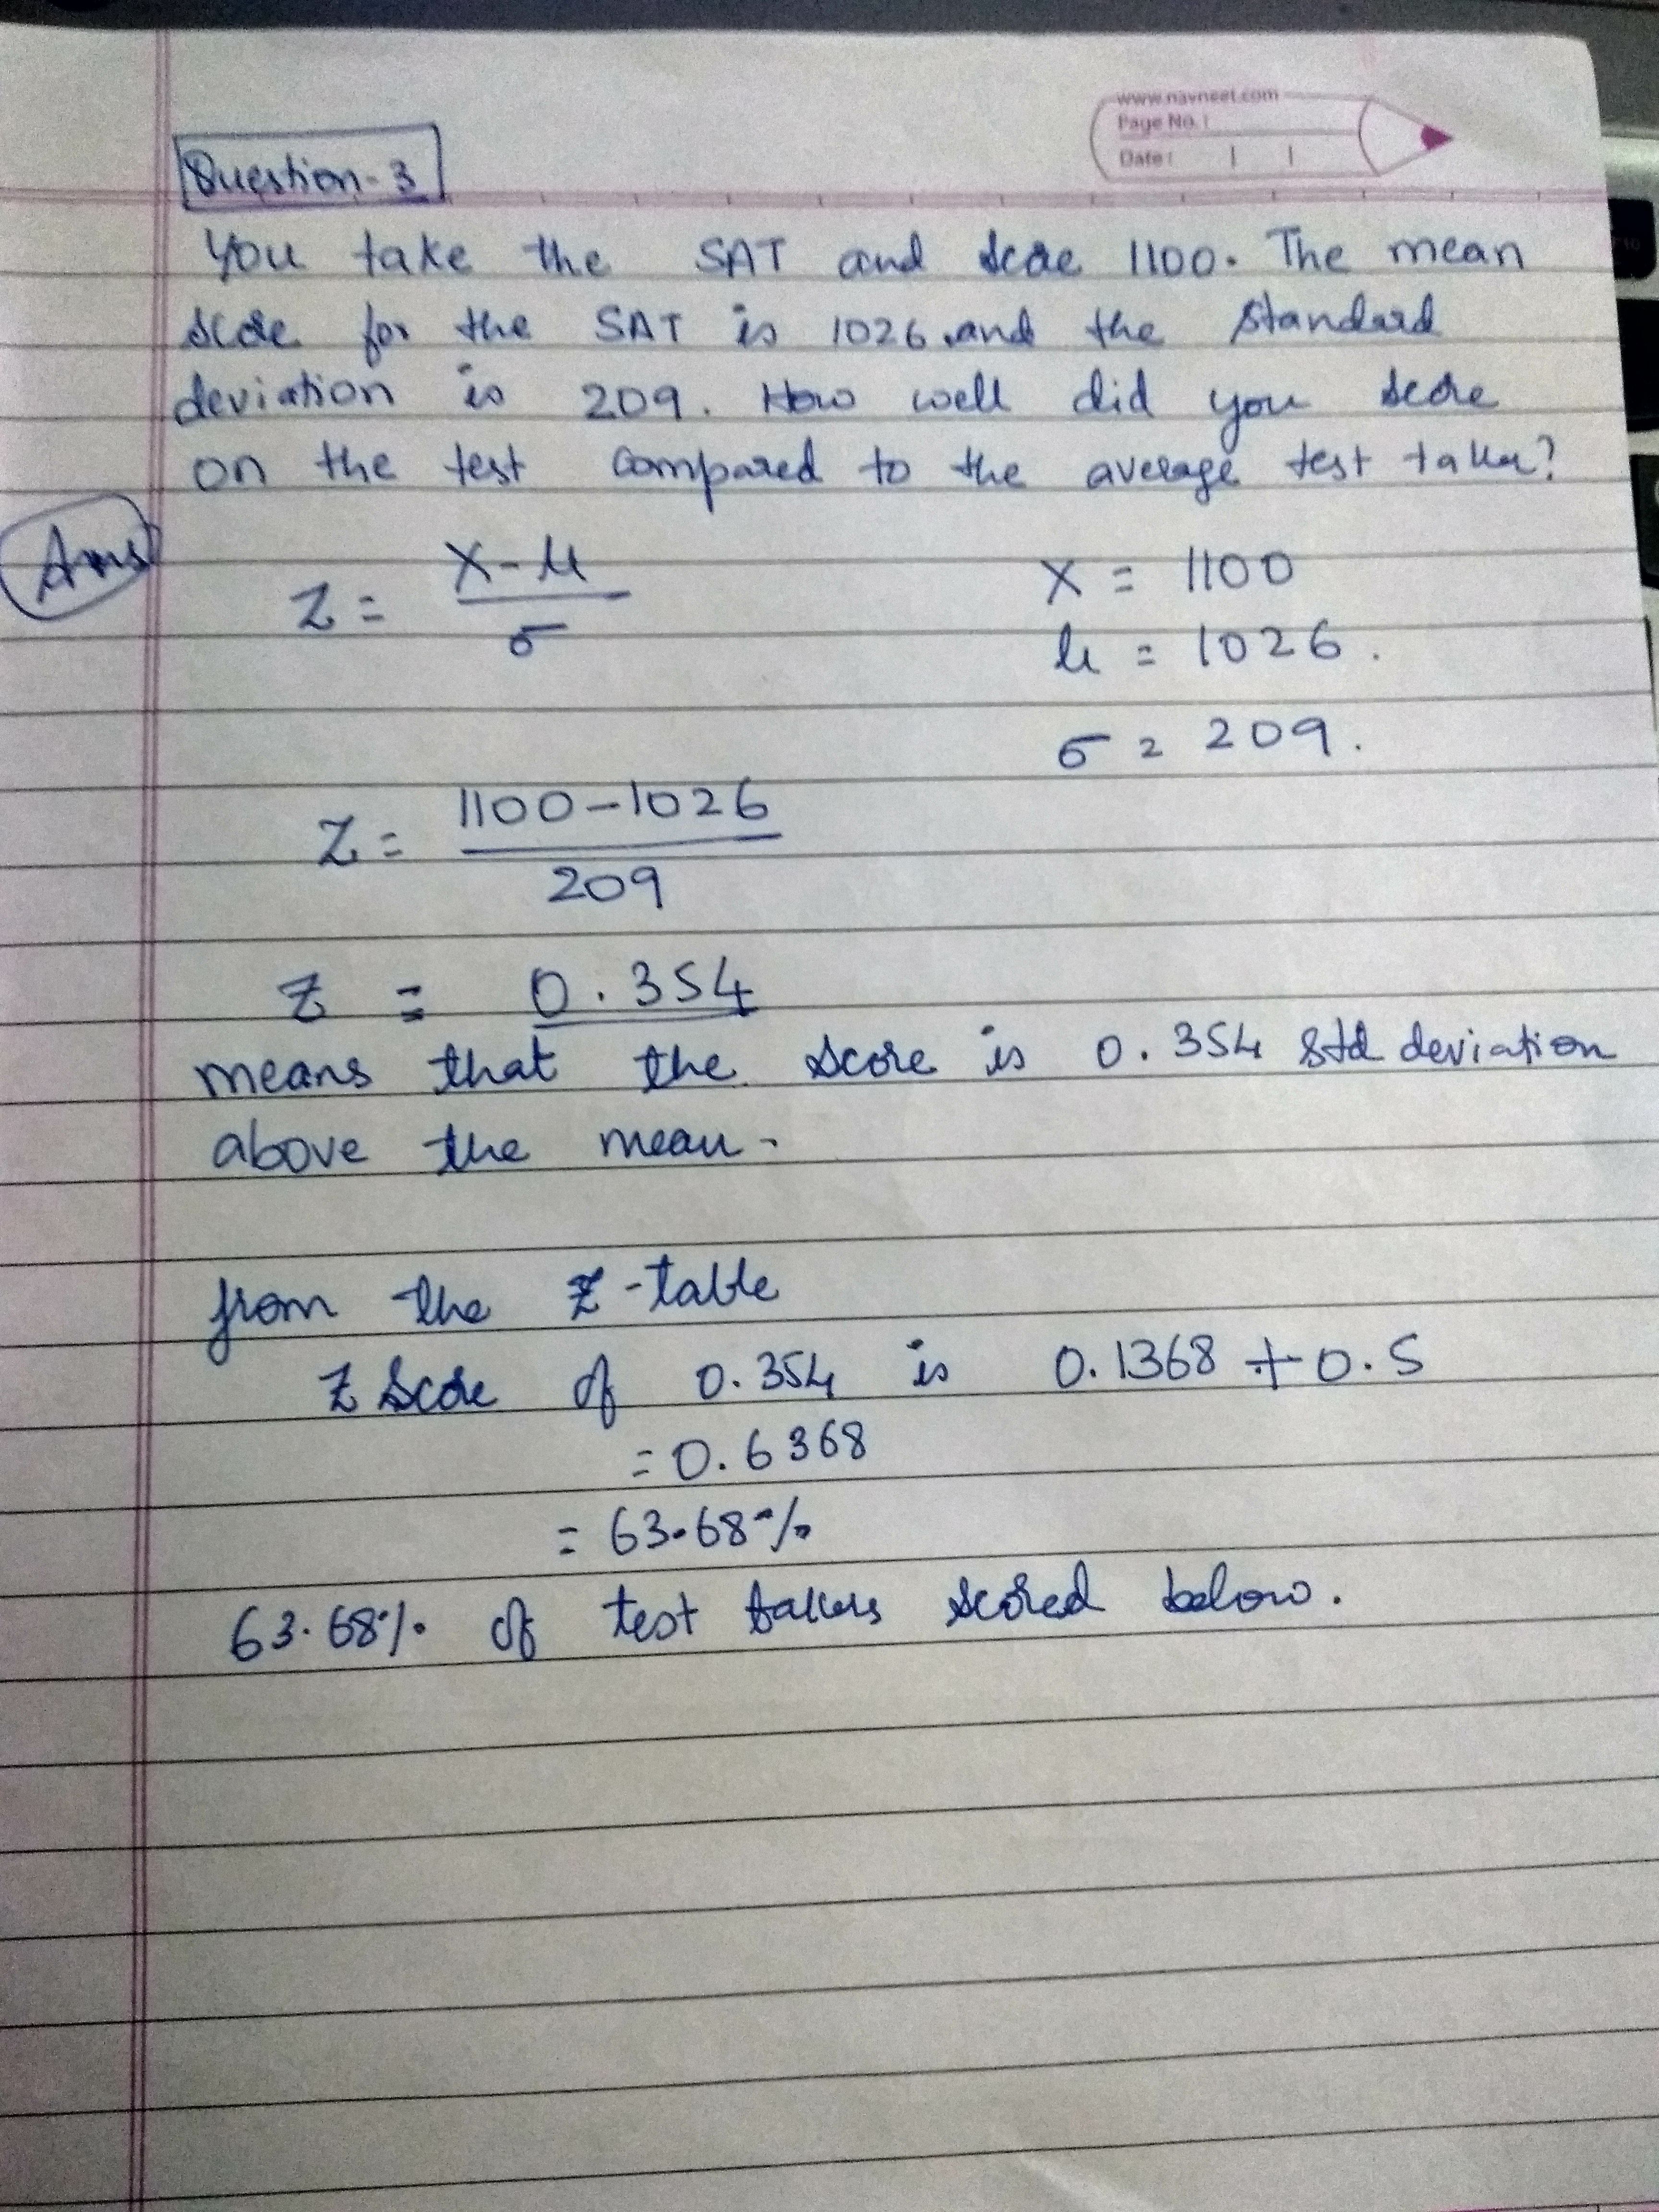 www.navneet.com
Page No.:
Date:
Question-3
You take the SAT and score 1100. The mean
score for the SAT is 1026 and the standard
deviation is 209. How well did you score
on the test compared to the average test taker?
Ans
Z = X-μ / σ
X = 1100
μ = 1026.
σ = 209.
Z = 1100-1026 / 209
Z = 0.354
means that the score is 0.354 std deviation
above the mean.
from the Z-table
Z score of 0.354 is 0.1368 + 0.5
= 0.6368
= 63.68%
63.68% of test takers scored below.